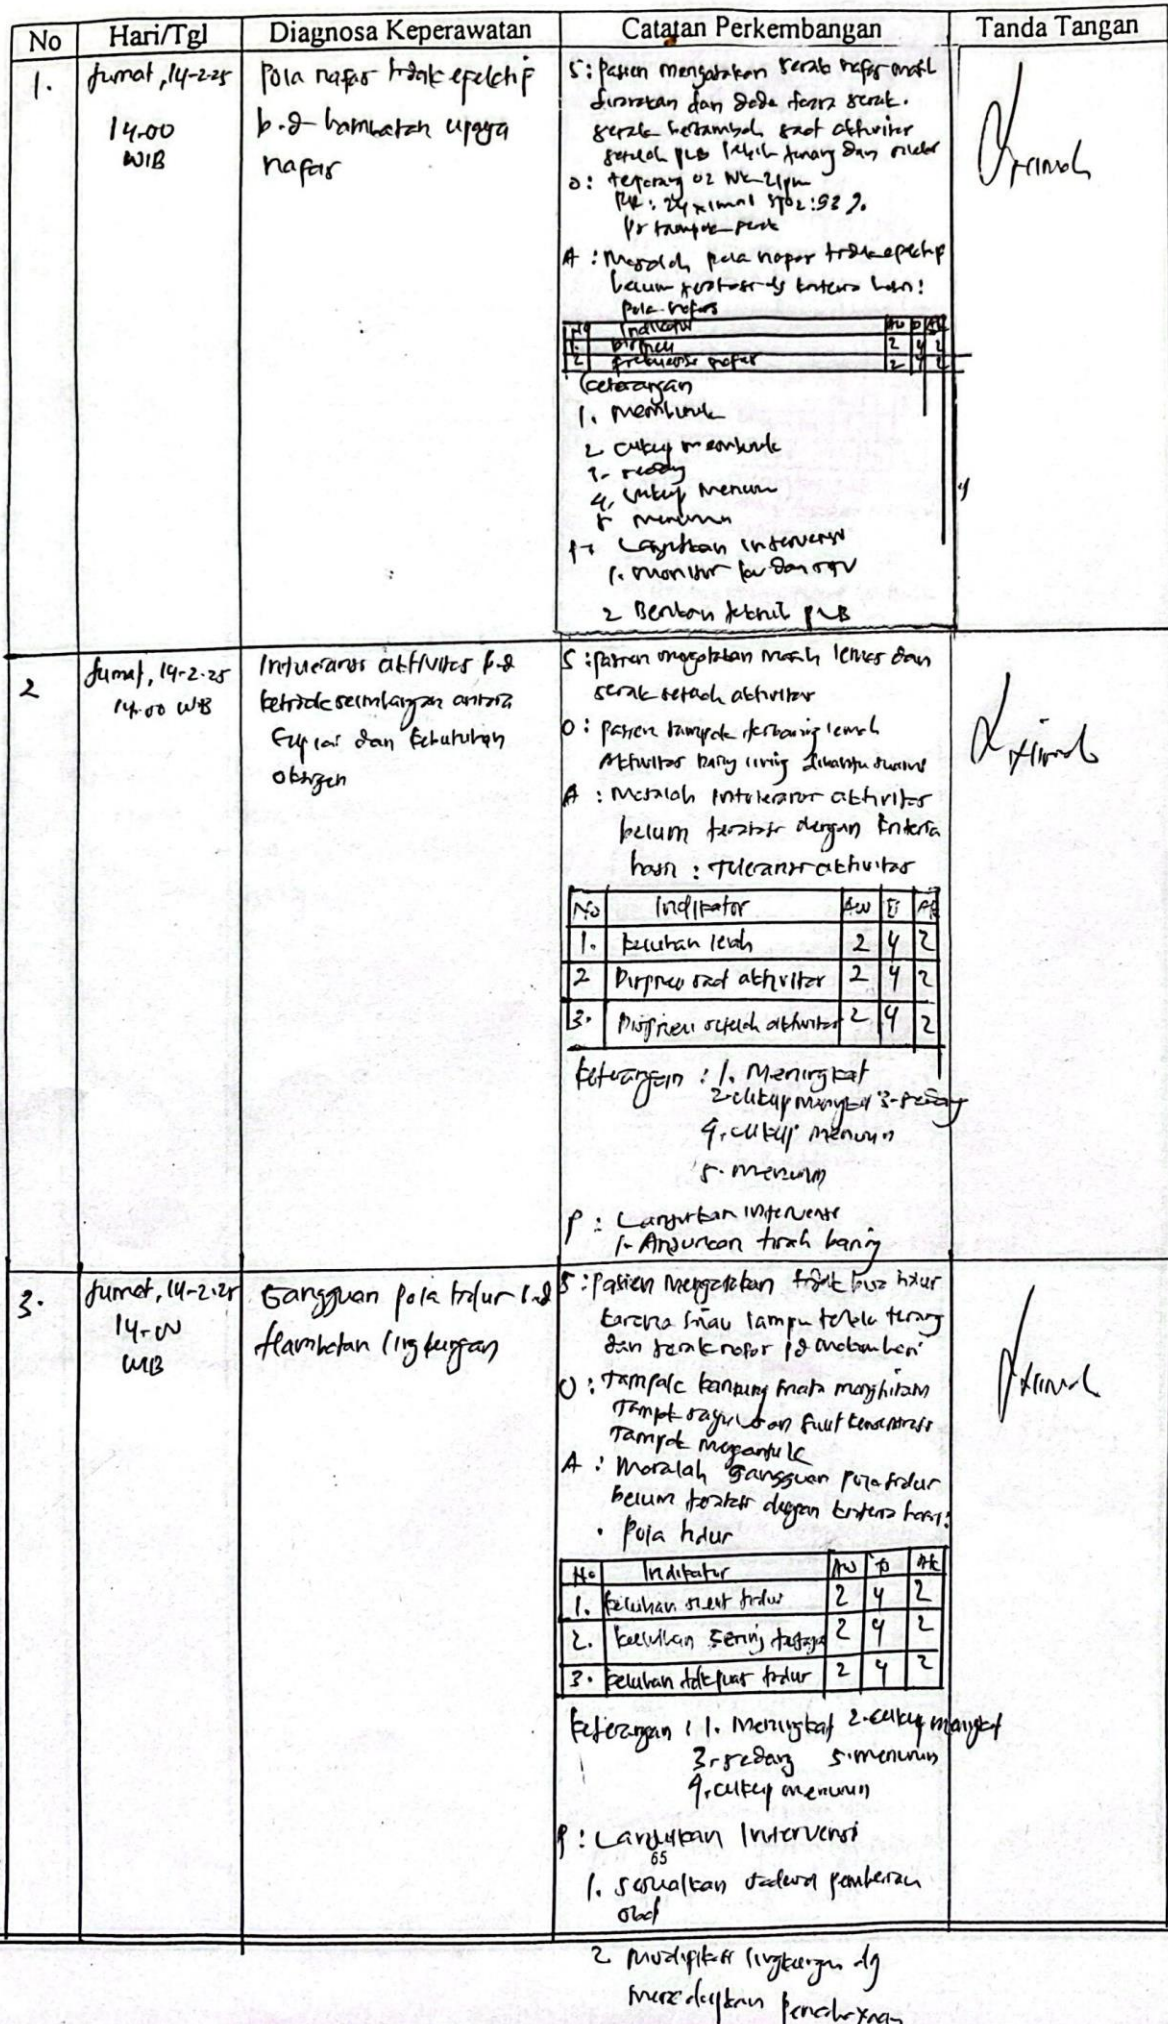 No Hari/Tgl Diagnosa Keperawatan Catatan Perkembangan Tanda Tangan
1. Jumat, 14-2-25
14.00
WIB
Pola nafas tidak epektip
b.d hambatan upaya
nafas
S: Pasien mengatakan sesak nafas masih
dirasakan dan dada terasa sesak.
sesak bertambah saat aktivitas
setelah PLB lebih tenang dan rileks
O: terpasang O2 NK 2 lpm
RR: 24 x/mnt SpO2: 93 %.
Ps tampak
A: Masalah pola napas tidak epektip
belum teratasi dg kriteria hasil:
pola nafas
No Indikator Aw T Ak
1. Dispneu 2 4 2
2 frekuensi nafas 2 4 2
Keterangan
1. Memburuk
2 cukup memburuk
3. sedang
4. cukup Menurun
5 menurun
P: Lanjutkan intervensi
1. Monitor ku dan TTV
2 Berikan teknik PLB
2 Jumat, 14-2-25
14.00 WIB
Intoleransi aktivitas b.d
ketidakseimbangan antara
suplai dan kebutuhan
oksigen
S: pasien mengatakan masih lemas dan
sesak setelah aktivitas
O: pasien tampak terbaring lemah
Aktivitas dibantu suami
A: Masalah intoleransi aktivitas
belum teratasi dengan kriteria
hasil: Toleransi aktivitas
No Indikator Aw T Ak
1. keluhan lelah 2 4 2
2 Dispneu saat aktivitas 2 4 2
3. Dispneu setelah aktivitas 2 4 2
Keterangan: 1. Meningkat
2. cukup meningkat 3. sedang
4. cukup menurun
5. menurun
P: Lanjutkan intervensi
1. Anjurkan tirah baring
3. Jumat, 14-2-25
14.00
WIB
Gangguan pola tidur b.d
Hambatan lingkungan
S: pasien Mengatakan tidak bisa tidur
karena lampu terlalu terang
dan sesak nafas pd malam hari
O: Tampak kantung mata menghitam
Tampak sayu dan sulit konsentrasi
Tampak mengantuk
A: Masalah Gangguan pola tidur
belum teratasi dengan kriteria hasil:
• Pola tidur
No Indikator Aw T Ak
1. keluhan sulit tidur 2 4 2
2. keluhan sering terjaga 2 4 2
3. keluhan tdk puas tidur 2 4 2
Keterangan: 1. Meningkat 2. cukup meningkat
3. sedang 5. menurun
4. cukup menurun
P: Lanjutkan Intervensi
65
1. sesuaikan jadwal pemberian
obat
2 Modipikasi lingkungan dg
pencahayaan